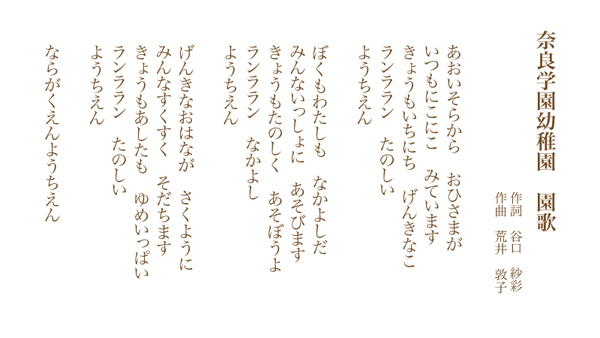 奈良学園幼稚園　園歌
作詞　谷口　紗彩
作曲　荒井　敦子
あおいそらから　おひさまが
いつもにこにこ　みています
きょうもいちにち　げんきなこ
ランララン　たのしい
ようちえん
ぼくもわたしも　なかよしだ
みんないっしょに　あそびます
きょうもたのしく　あそぼうよ
ランララン　なかよし
ようちえん
げんきなおはなが　さくように
みんなすくすく　そだちます
きょうもあしたも　ゆめいっぱい
ランララン　たのしい
ようちえん
ならがくえんようちえん